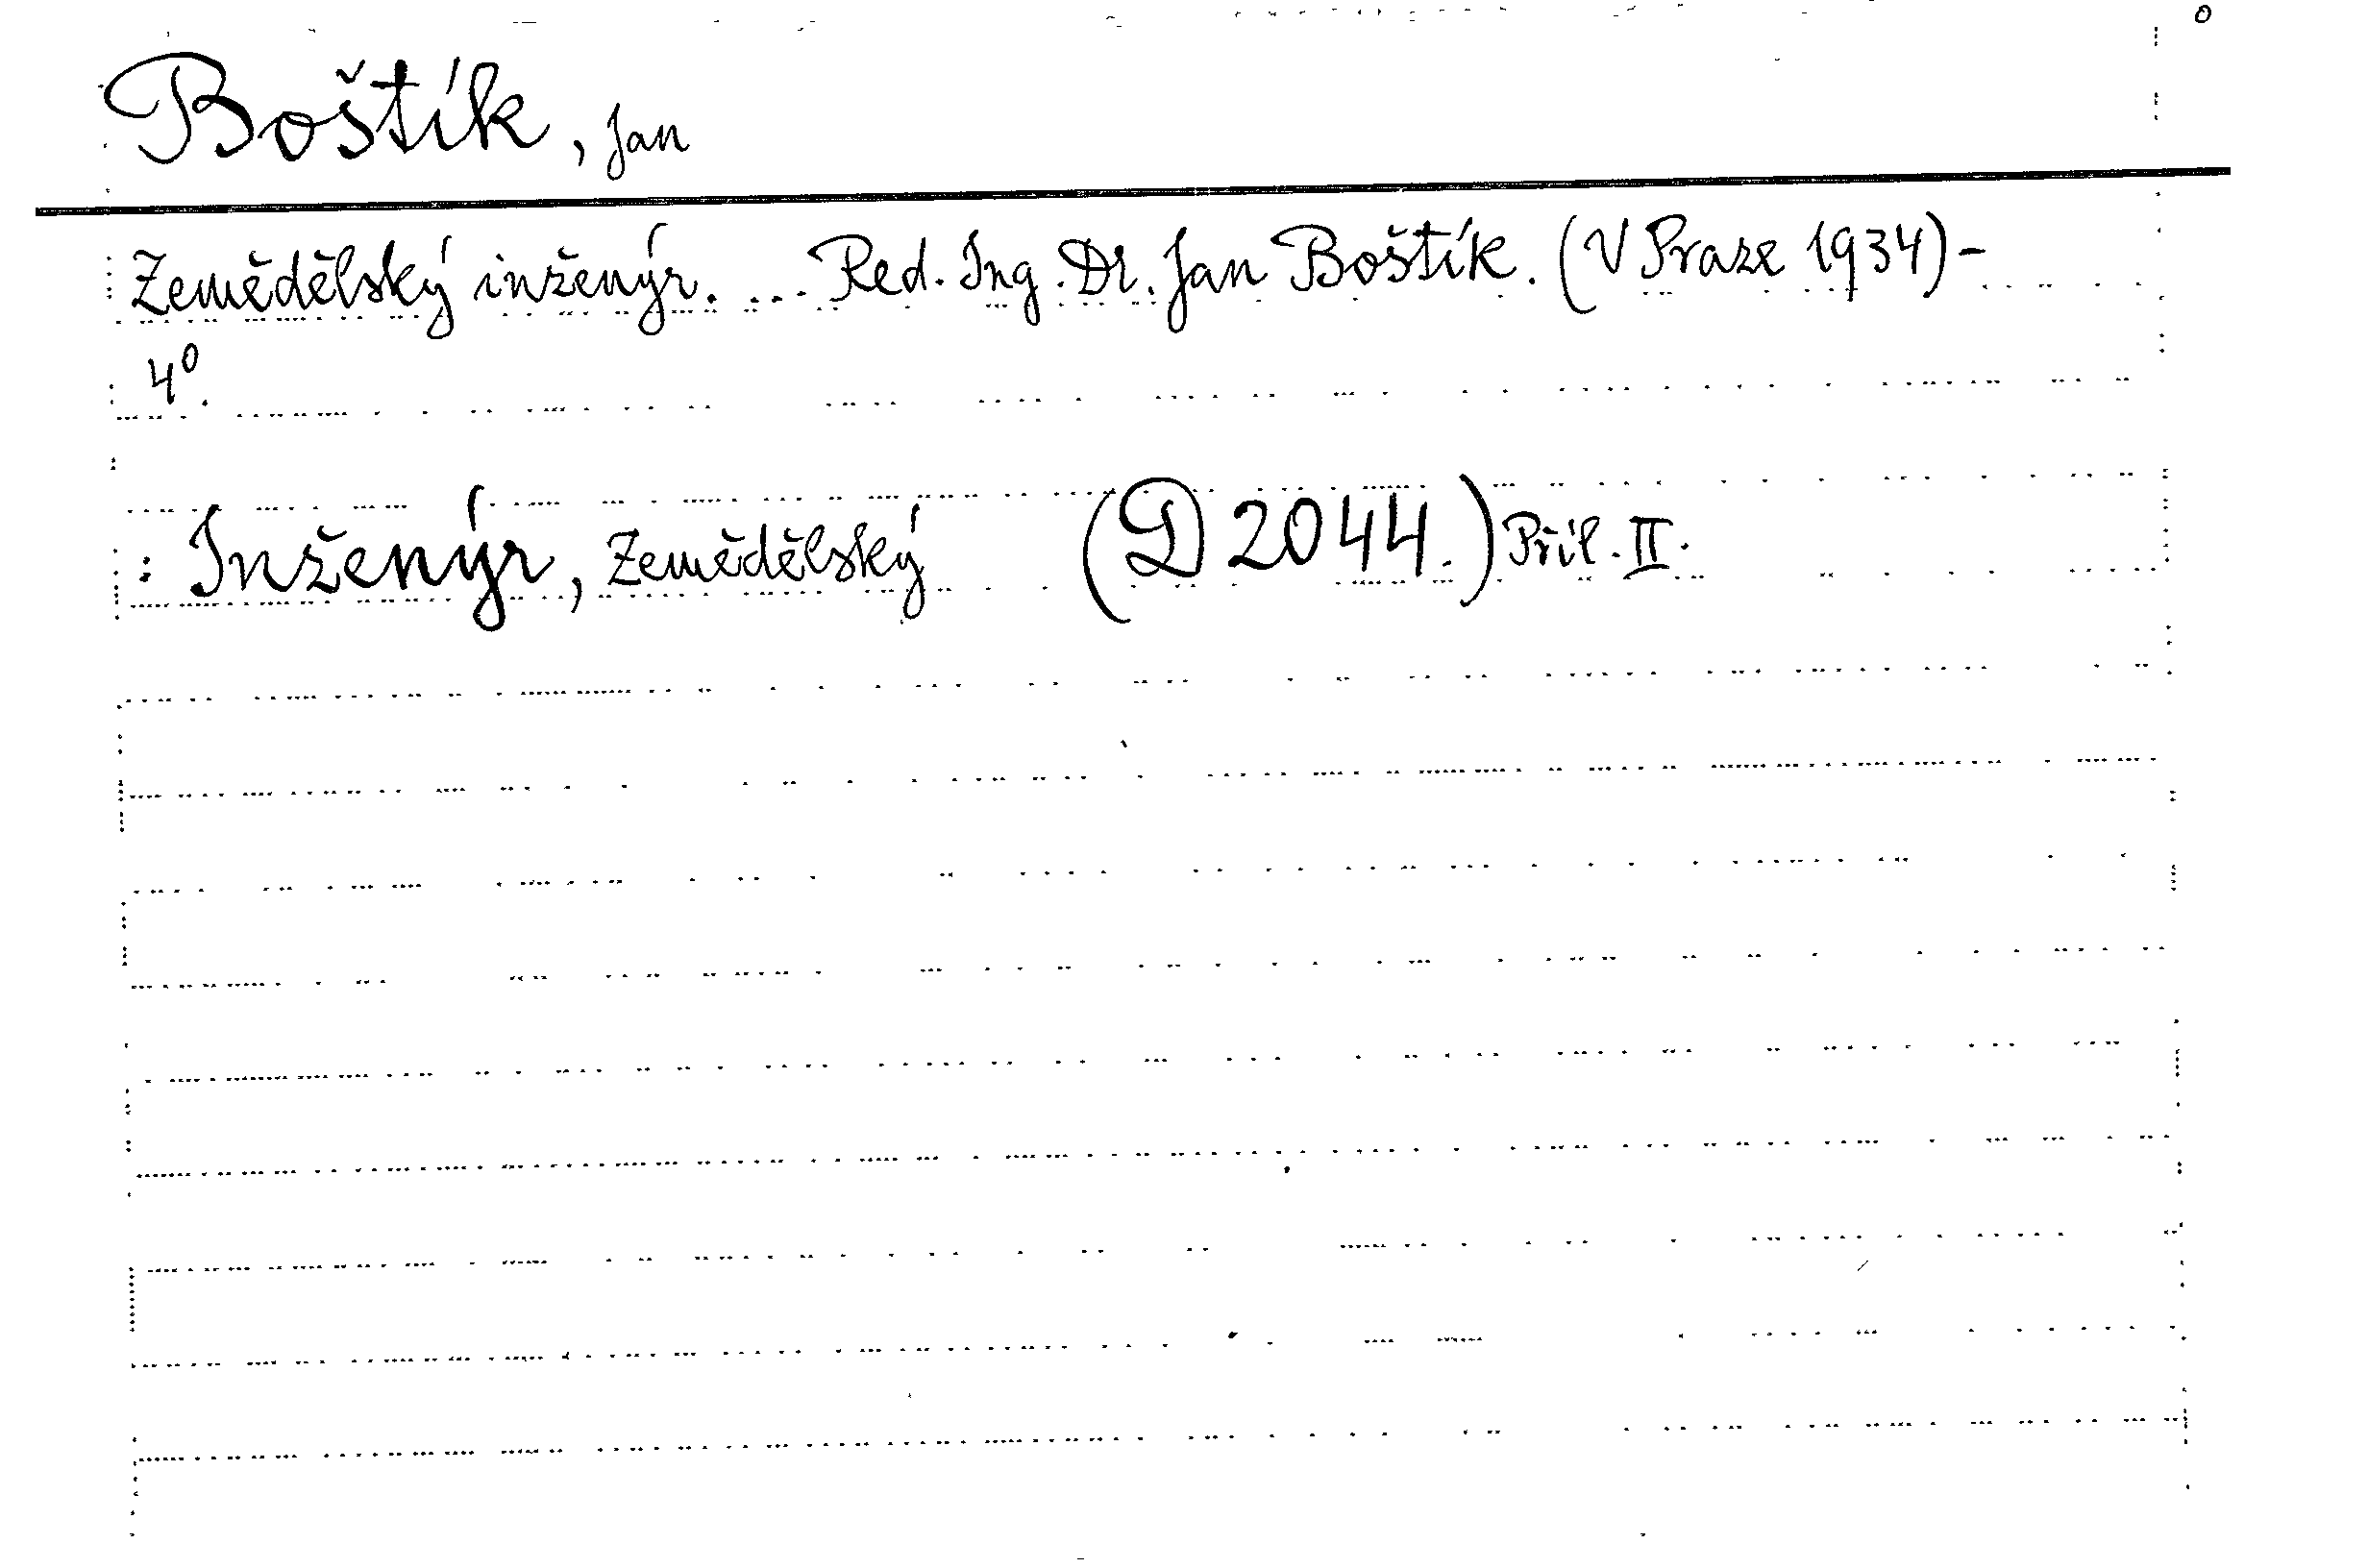 Boštík, Jan
Zemědělský inženýr. ... Red. Ing. Dr. Jan Boštík. (V Praze 1934) -
4⁰.
: Inženýr, Zemědělský (D 2044.) Příl. II.